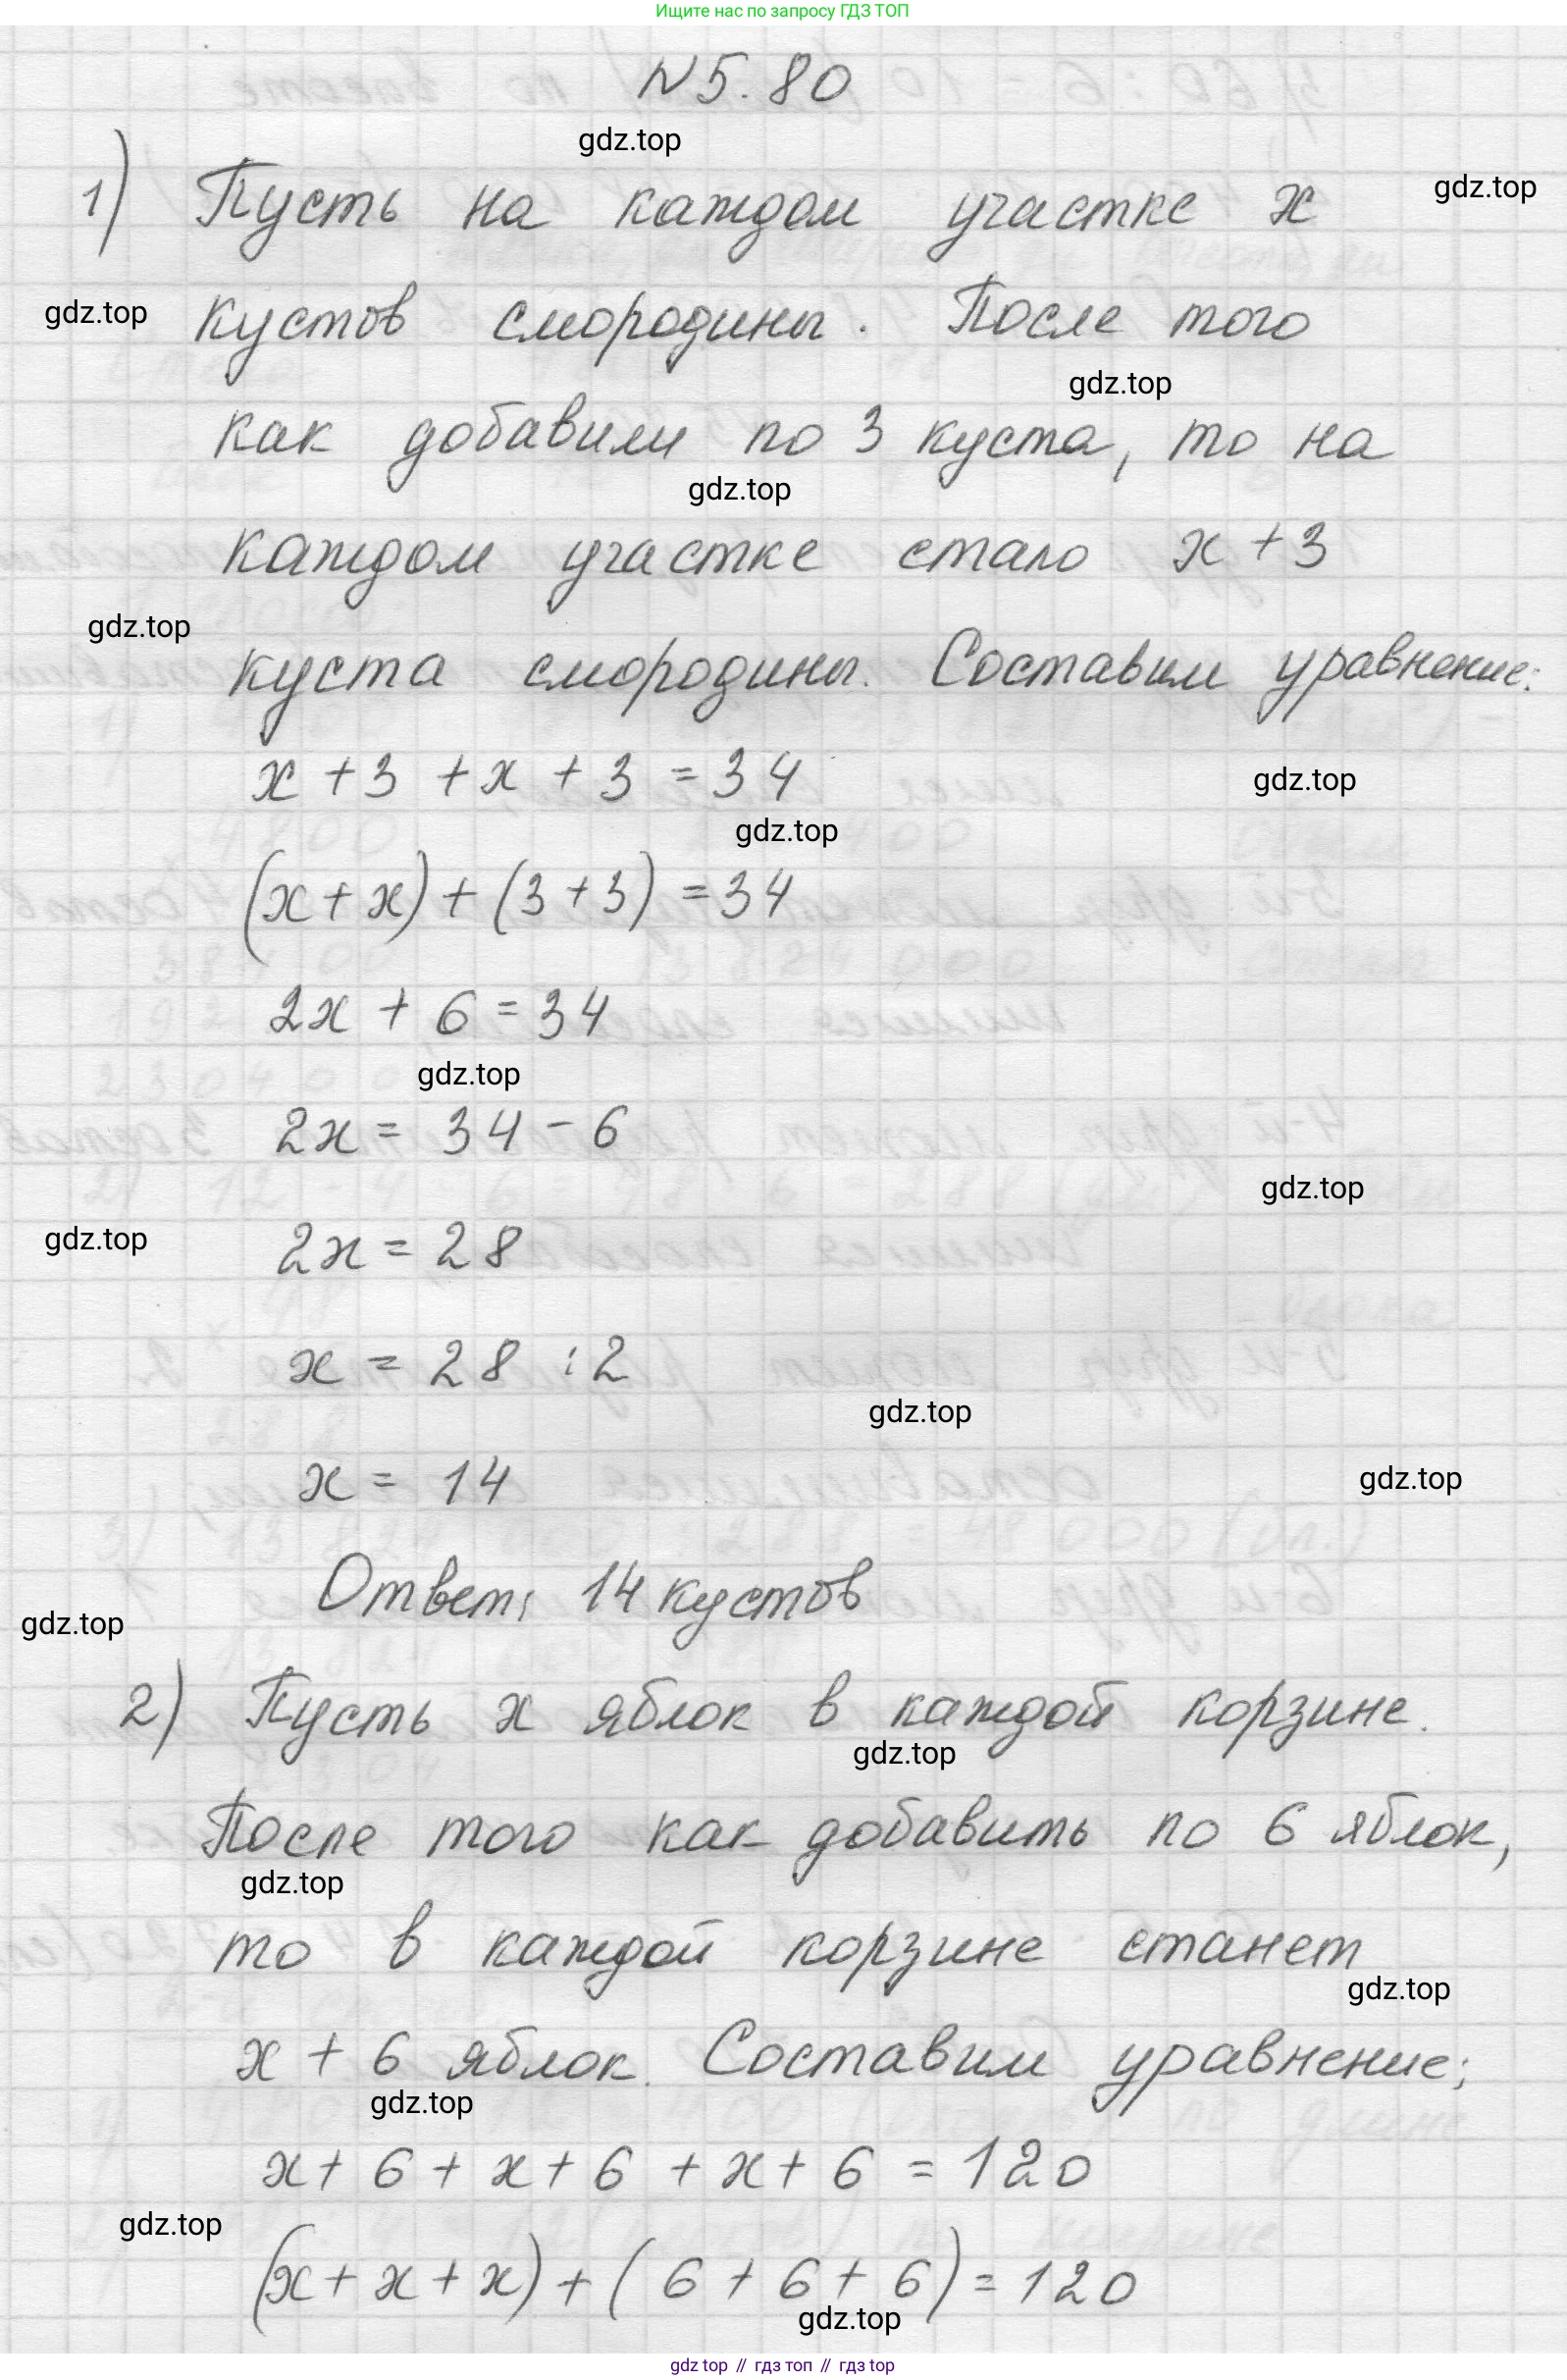 Ищите нас по запросу ГДЗ ТОП
№5.80
gdz.top
1) Пусть на каждом участке x
gdz.top
gdz.top
кустов смородины. После того
gdz.top
как добавили по 3 куста, то на
gdz.top
каждом участке стало x + 3
gdz.top
куста смородины. Составим уравнение:
x + 3 + x + 3 = 34
gdz.top
gdz.top
(x + x) + (3 + 3) = 34
2x + 6 = 34
gdz.top
2x = 34 - 6
gdz.top
gdz.top
2x = 28
x = 28 : 2
gdz.top
x = 14
gdz.top
Ответ: 14 кустов
gdz.top
2) Пусть x яблок в каждой корзине.
gdz.top
После того как добавить по 6 яблок,
gdz.top
то в каждой корзине станет
gdz.top
x + 6 яблок. Составим уравнение:
gdz.top
x + 6 + x + 6 + x + 6 = 120
gdz.top
(x + x + x) + (6 + 6 + 6) = 120
gdz.top
gdz top // гдз топ // гдз top